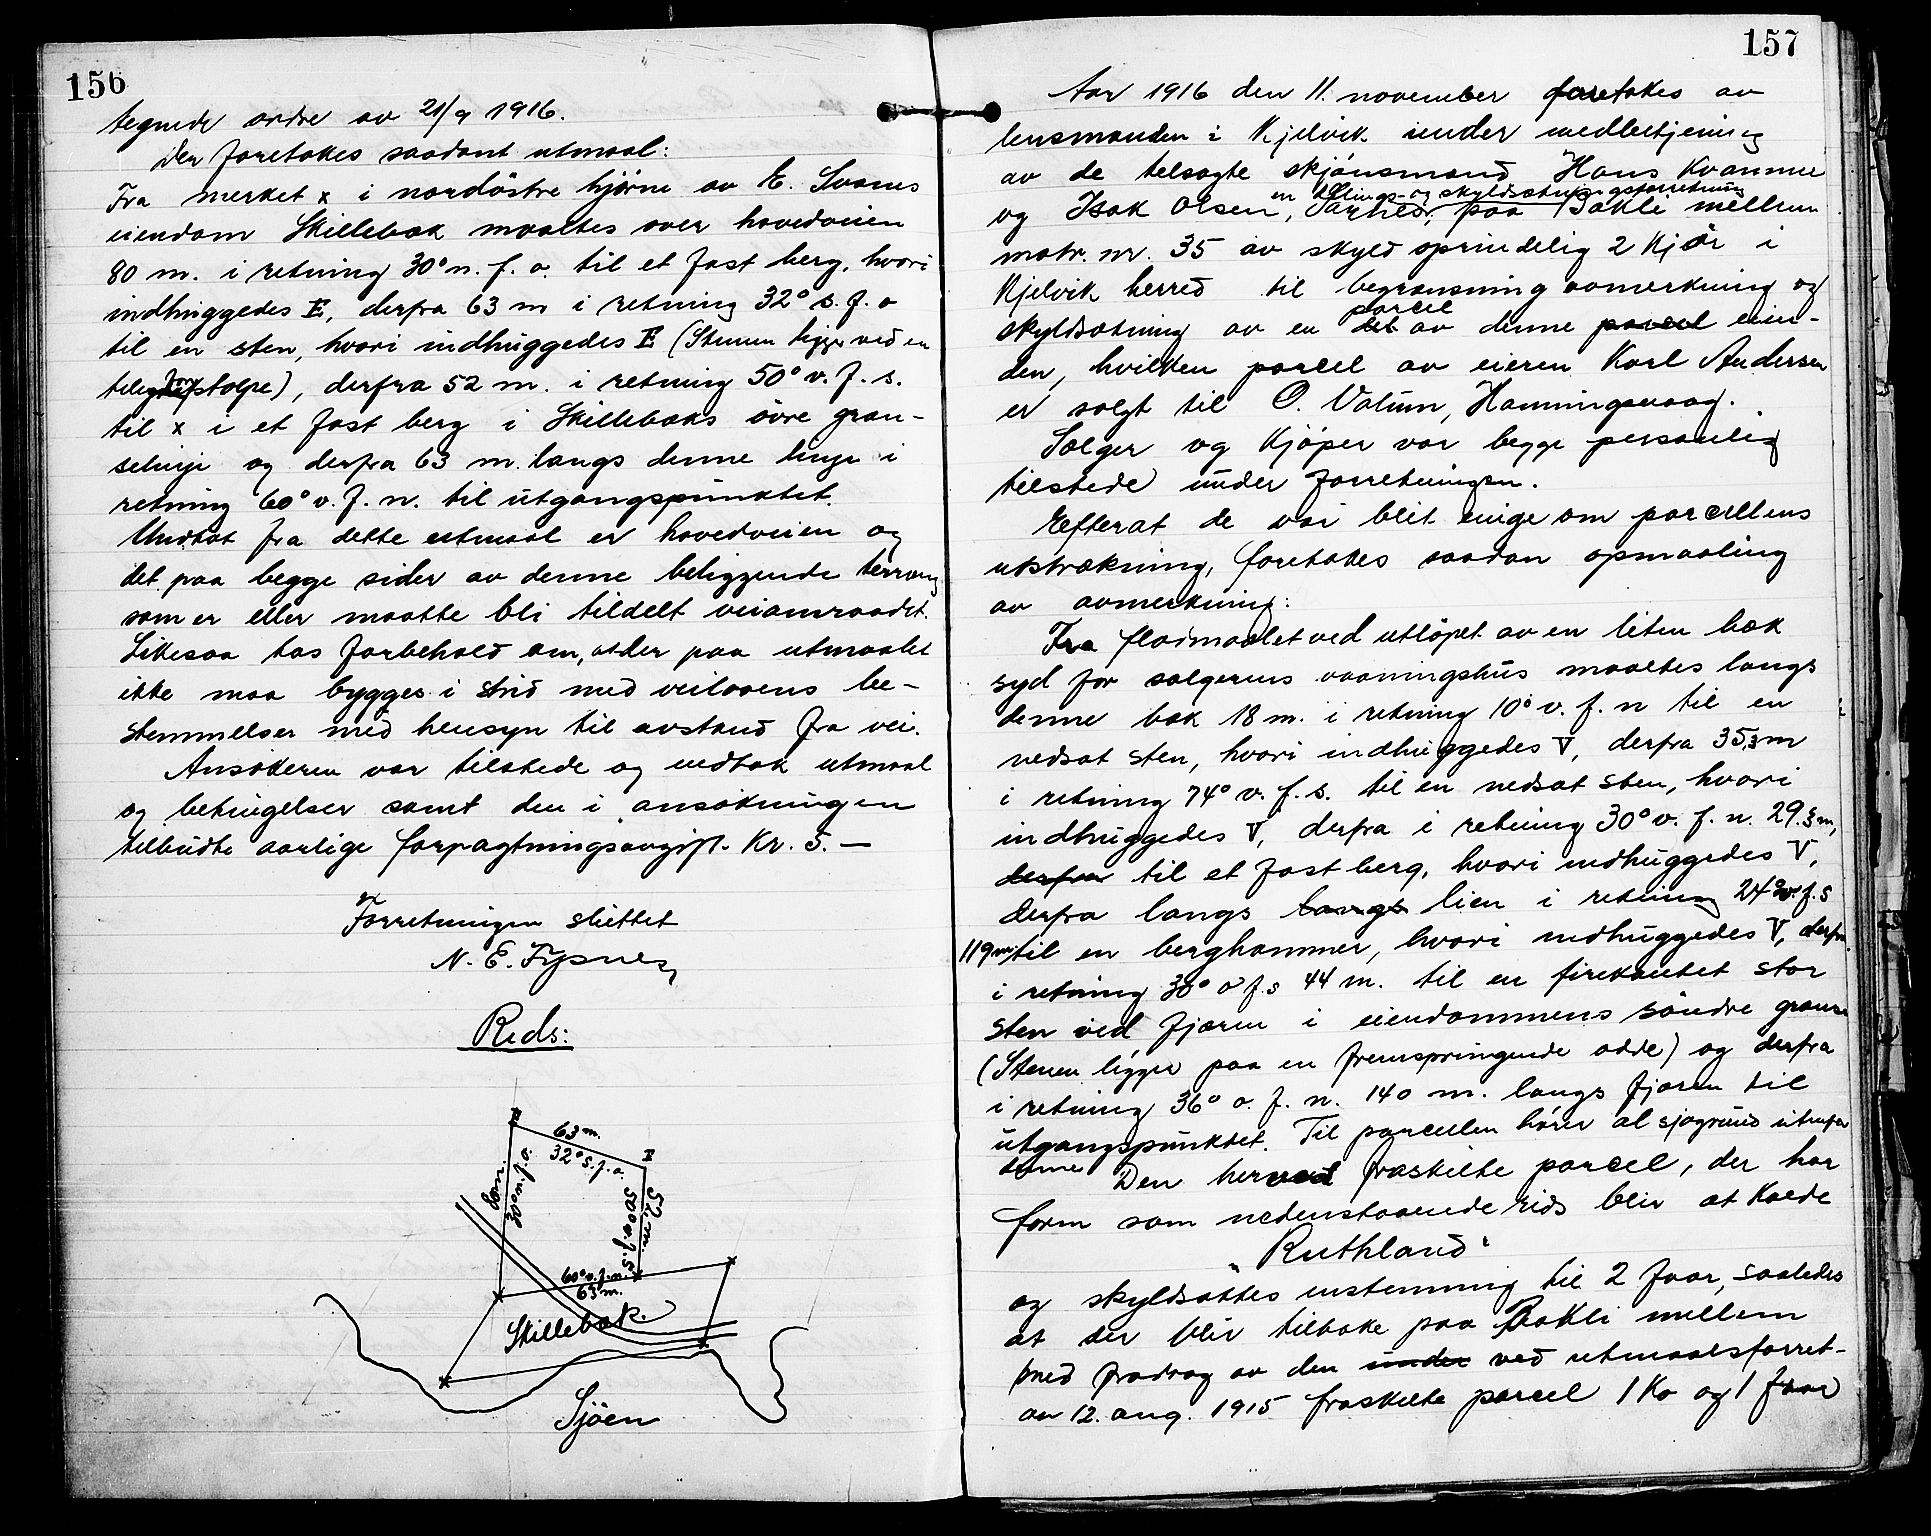 156
tegnede ordre av 21/9 1916.
Der foretokes saadant utmaal:
Fra merket x i nordöstre hjörne av E. Svanes
eiendom Skillebæk maaltes over hovedveien
80 m. i retning 30° n. f. o. til et fast berg, hvori
indhuggedes E, derfra 63 m i retning 32° s. f. o
til en sten, hvori indhuggedes E (Stenen ligger ved en
stolpe), derfra 52 m. i retning 50° v. f. s.
til x i et fast berg i Skillebæks övre græn-
selinje og derfra 63 m. langs denne linje i
retning 60° v. f. n. til utgangspunktet.
Undtat fra dette utmaal er hovedveien og
det paa begge sider av denne beliggende terræng
som er eller maatte bli tildelt veiomraadet.
Likesaa tas forbehold om, at der paa utmaalet
ikke maa bygges i strid med veilovens be-
stemmelser med hensyn til avstand fra vei.
Ansökeren var tilstede og vedtok utmaal
og betingelser samt den i ansökningen
tilbudte aarlige forpagtningsavgift. Kr. 5.—
Forretningen sluttet
N. E. Fysnes
Rids:
E
63 m.
32° s. f. o.
E
80 m.
30° n. f. o.
52 m.
50° v. f. s.
60° v. f. n.
63 m.
Skillebæk.
Sjöen
157
Aar 1916 den 11. november foretokes av
lensmanden i Kjelvik under medbetjening
av de tilsagte skjönsmænd Hans Kvamme
og Isak Olsen, Sarnes, en delings- og skyldsætningsforretning paa Bakli mellem
matr. nr. 35 av skyld oprindelig 2 Kjör i
Kjelvik herred til begrænsning avmerkning og
skyldsætning av en del parcel av denne parcel eien-
dom, hvilken parcel av eieren Karl Andersen
er solgt til O. Vatum, Honningsvaag.
Sælger og Kjöper var begge personlig
tilstede under forretningen.
Efterat de var blit enige om parcellens
utstrækning, foretokes saadan opmaaling
av avmerkning:
Fra flodmaalet ved utlöpet av en liten bæk
syd for sælgerens vaaningshus maaltes langs
denne bæk 18 m. i retning 10° v. f. n til en
nedsat sten, hvori indhuggedes V, derfra 35,3 m
i retning 74° v. f. s. til en nedsat sten, hvori
indhuggedes V, derfra i retning 30° v. f. n. 29.5 m,
derfra til et fast berg, hvori indhuggedes V,
derfra langs langs lien i retning 24° v. f. s
119 m til en berghammer, hvori indhuggedes V, derfra
i retning 30° o f. s 44 m. til en firekantet stor
sten ved fjæren i eiendommens söndre grænse
(Stenen ligger paa en fremspringende odde) og derfra
i retning 36° o. f. n. 140 m. langs fjæren til
utgangspunktet. Til parcellen hörer al sjögrund utenfor
denne
Den herved fraskilte parcel, der har
form som nedenstaaende rids blir at Kalde
"Ruthland"
og skyldsattes enstemmig til 2 Faar, saaledes
at der blir tilbake paa Bakli mellem
med fradrag av den under ved utmaalsforret-
av 12. aug. 1915 fraskilte parcel 1 Ko og 1 Faar